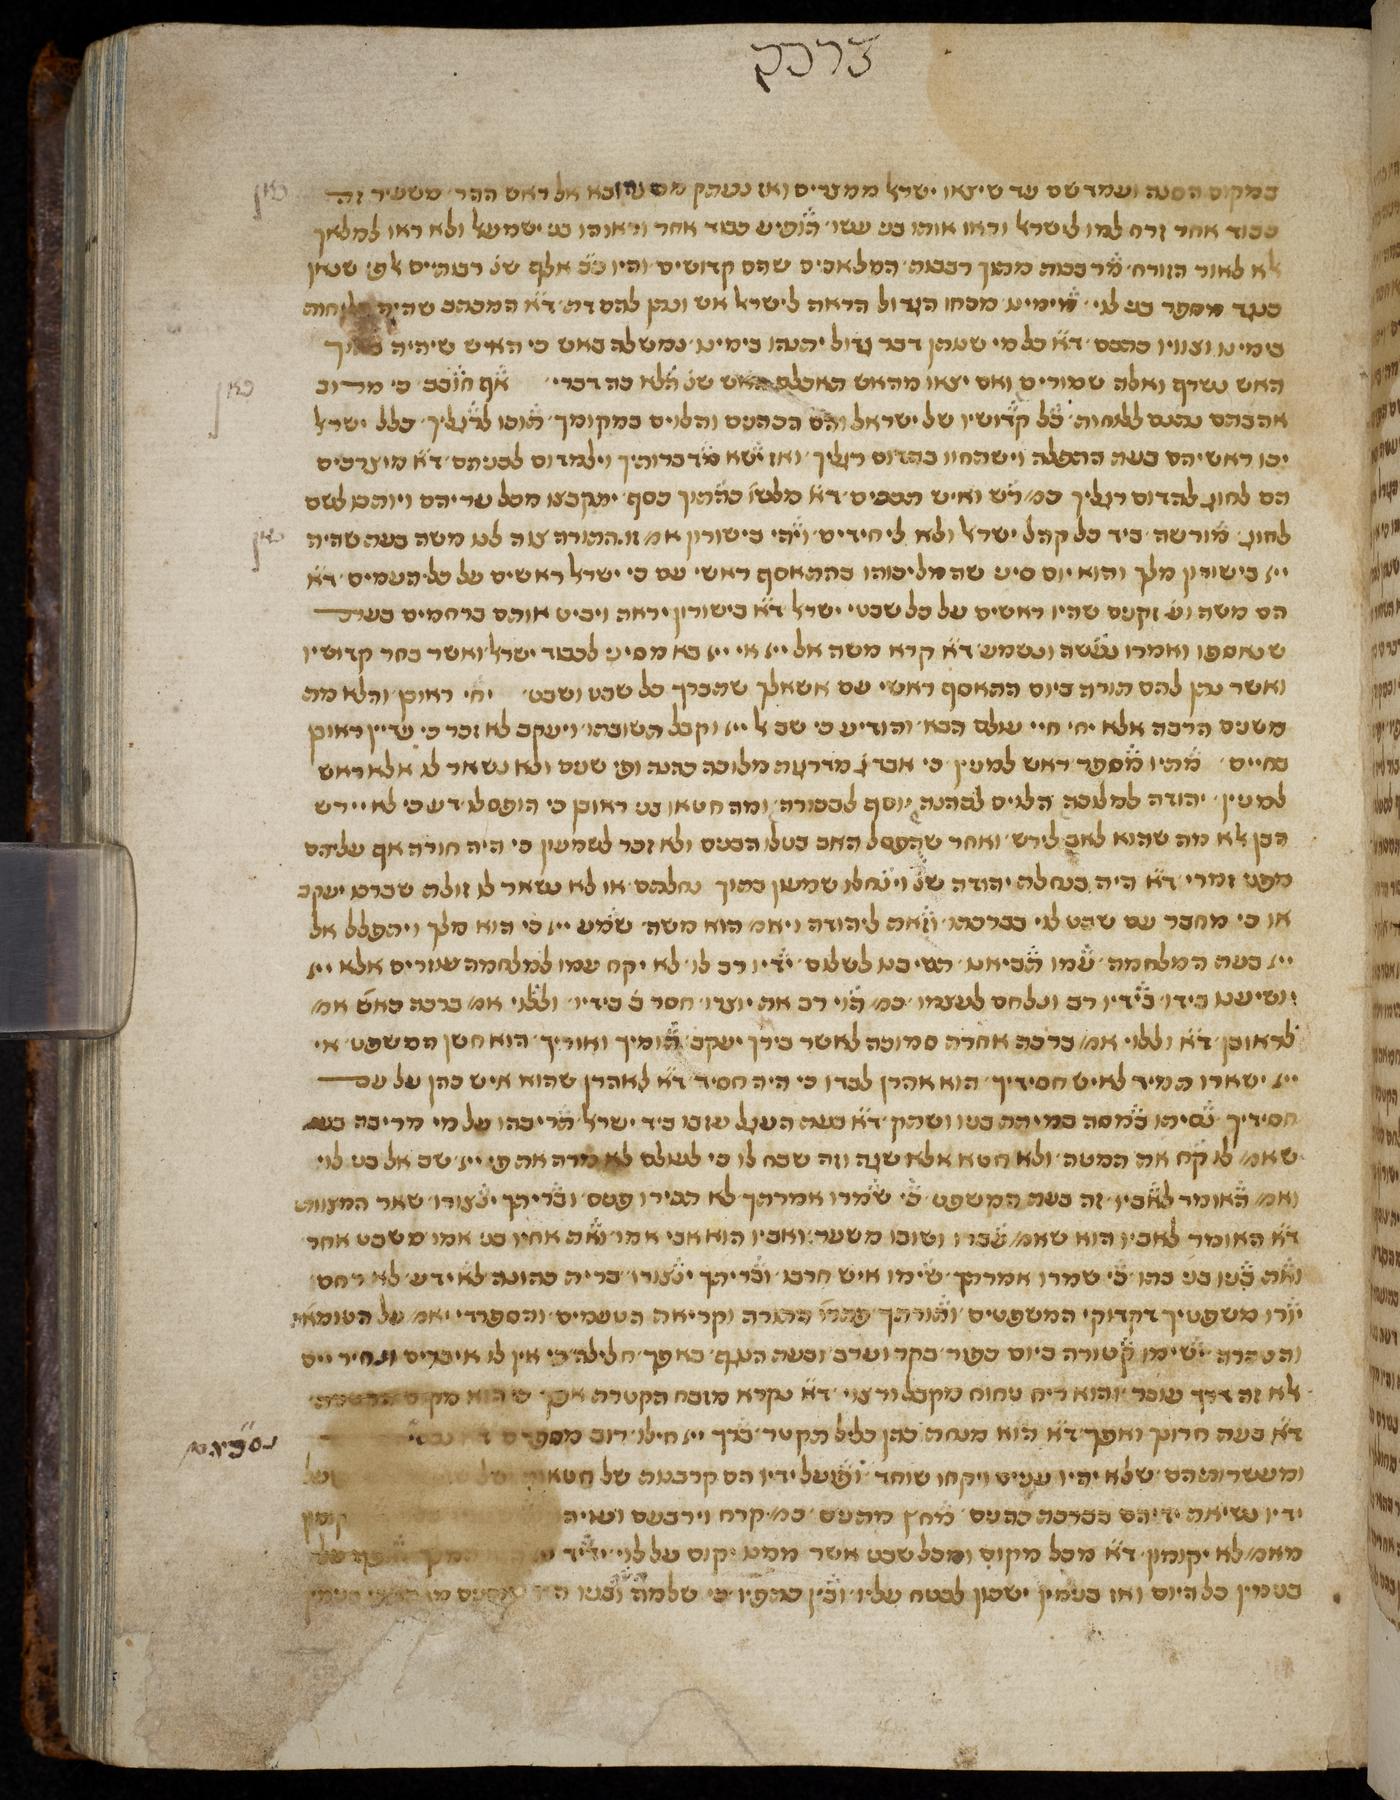 במקום הסנה ועמד שם עד שיצאו ישראל ממצרים ואז נעתק משם ובא אל ראש ההר משעיר זה
כבוד אחר זרח למו לישראל וראו אותו בני עשו הופיע כבוד אחר וראוהו בני ישמעאל ולא ראו למלאך
אלא לאור הזורח מרבבות מתוך רבבות המלאכים שהם קדושים והיו כ״ב אלף שנ׳ רבותים אלפי שנאן
כנגד מספר בני לוי מימינו מכחו הגדול הראה לישראל אש ונתן להם דת ד״א המכתב שהיה
בימינו וצוויו כתבם ד״א כל מי שנותן דבר גדול יתנהו בימינו נמשלה באש כי האיש שיהיה
האש נשרף ואלה שמורים ואם יצאו מהאש האכלם האש שנ׳ הלא כה דברי אף חובב כי מרוב
אהבתם נתנם ללוחות כל קדושיו של ישראל והם הכהנים והלוים במקומך תוכו לרגליך כלל ישראל
יכו ראשיהם בעת התפלה וישתחוו בהדום רגליך ואז ישא מדברותיך וילמדום לבניהם ד״א מוצרכים
הם לחונן להדום רגליך כמ׳ רש ואיש תככים ד״א מלשו׳ כהתוך כסף יתקבצו מכל עריהם ויותכו לשם
לחונן מורשה ביד כל קהל ישראל ולא ליחידים ויהי בישורון אמ׳ זו התורה צוה לנו משה בעת שהיה
ייי בישורון מלך והוא יום סיני שהמליכוהו בהתאסף ראשי עם כי ישראל ראשים על כל העמים ד״א
הם משה וע׳ זקנים שהיו ראשים על כל שבטי ישראל ד״א בישורון יראה ויביט אותם ברחמים בעת
שנאספו ואמרו נעשה ונשמע ד״א קרא משה אל ייי אי ייי בא מסיני לכבוד ישראל ואשר בחר קדושיו
ואשר נתן להם תורה ביום התאסף ראשי עם אשאלך שתברך כל שבט ושבט יחי ראובן והלא מת
משנים הרבה אלא יחי חיי עולם הבא והודיע כי שב אל ייי וקבל תשובתו ויעקב לא זכר כי עדיין ראובן
בחיים מתיו מספר ראש למנין כי אבד ג׳ מדרגות מלוכה כהנה ופי שנים ולא נשאר לו אלא ראש
למנין יהודה למלוכה הלוים לכהנה יוסף לבכורה ומה חטאו בני ראובן כי הופסלו דע כי לא יירש
הבן אלא מה שהוא לאב לירש ואחר שהפסל האב בטלו הבנים ולא זכר לשמעון כי היה חורה אף עליהם
מפני זמרי ד״א היה בנחלת יהודה שנ׳ וינחלו שמעון בתוך נחלתם או לא נשאר לו זולת שברכו יעקב
או כי מחבר עם שבט לוי בברכתו וזאת ליהודה ויאמ׳ הוא משה שמע ייי כי הוא מלך ויתפלל אל
ייי בעת המלחמה עמו תביאנו תשיבנו לשלום ידיו רב לו לא יקח עמו למלחמה עוזרים אלא ייי
יושיענו בידו בידיו רב ונלחם לעצמו כמ׳ הוי רב את יוצרו חסר ב׳ בידיו וללוי אמ׳ ברכה כאש׳ אמ׳
לראובן ד״א וללוי אמ׳ ברכה אחרת סמוכה לאשר בירך יעקב תומיך ואוריך הוא חשן המשפט אי
ייי ישארו תמיד לאיש חסידיך הוא אהרן לבדו כי היה חסיד ד״א לאהרן שהוא איש כהן על עם
חסידיך נסיתו במסה במיתת בניו ושתק ד״א בעת העגל עזבו ביד ישראל תריבהו על מי מריבה בעת
שאמ׳ לו קח את המטה ולא חטא אלא שגה וזה שבח לו כי לעולם לא מרה את פי ייי שב אל בני לוי
ואמ׳ האומר לאביו זה בעת המשפט כי שמרו אמרתך לא הכירו פנים ובריתך ינצורו שאר המצוות
ד״א האומר לאביו הוא שאמ׳ עברו ושובו משער ואביו הוא אבי אמו ואת אחיו בני אמו משבט אחר
ואת בניו בני בתו כי שמרו אמרתך שימו איש חרבו ובריתך ינצורו ברית כהונה לא ידע לא רחם
יורו משפטיך דקדוקי המשפטים ותורתך פתרו׳ התורה וקריאת הטעמים והספרדי יאמ׳ על הטומאה
והטהרה ישימו קטורה ביום כפור בקר וערב ובעת הנגף באפך חלילה כי אין לו איברים ונחיריים
אלא זה דרך עובר והוא ריח ניחוח מקבל ורצוי ד״א נקרא מזבח הקטרת אפך
ד״א בעת חרונך ואפך ד״א הוא מנחת כהן כליל תקטר ברך ייי חילו רוב מספרם
ומעשרותיהם שלא יהיו עניים ויקחו שוחד ופועל ידיו הם קרבנות של חטאות
ידיו נשיאת ידיהם בברכת כהנים מחץ מתנים כמ׳ קרח וירבעם ועוזיה
מאמ׳ לא יקומון ד״א מכל מקום ומכל שבט אשר ממנו יקום על לוי ידיד
בנימין כל היום ואז בנימין ישכון לבטח עליו ובין כתפיו כי שלמה ובניו